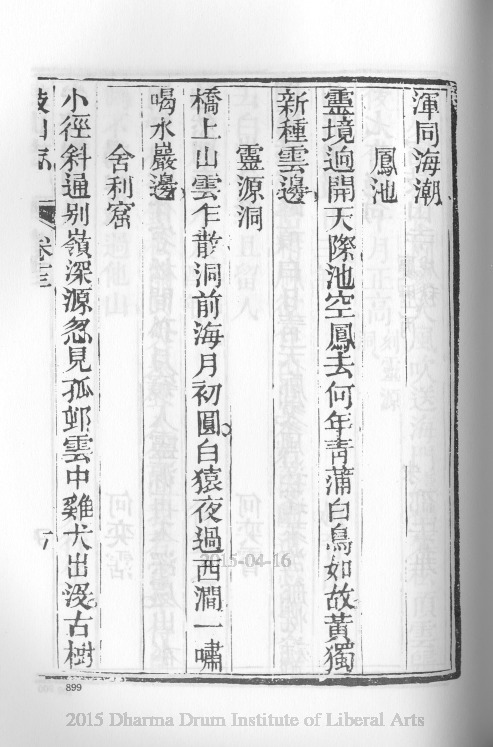 渾同海潮
鳳池
靈境逈開天際池空鳳去何年青蒲白鳥如故黃獨
新種雲邊
靈源洞
橋上山雲乍散洞前海月初圓白猿夜過西澗一嘯
喝水巖邊
舍利窟
小徑斜通别嶺深源忽見孤邨雲中雞犬出没古樹
鼓山志
卷十三
899
2015-04-16
2015 Dharma Drum Institute of Liberal Arts